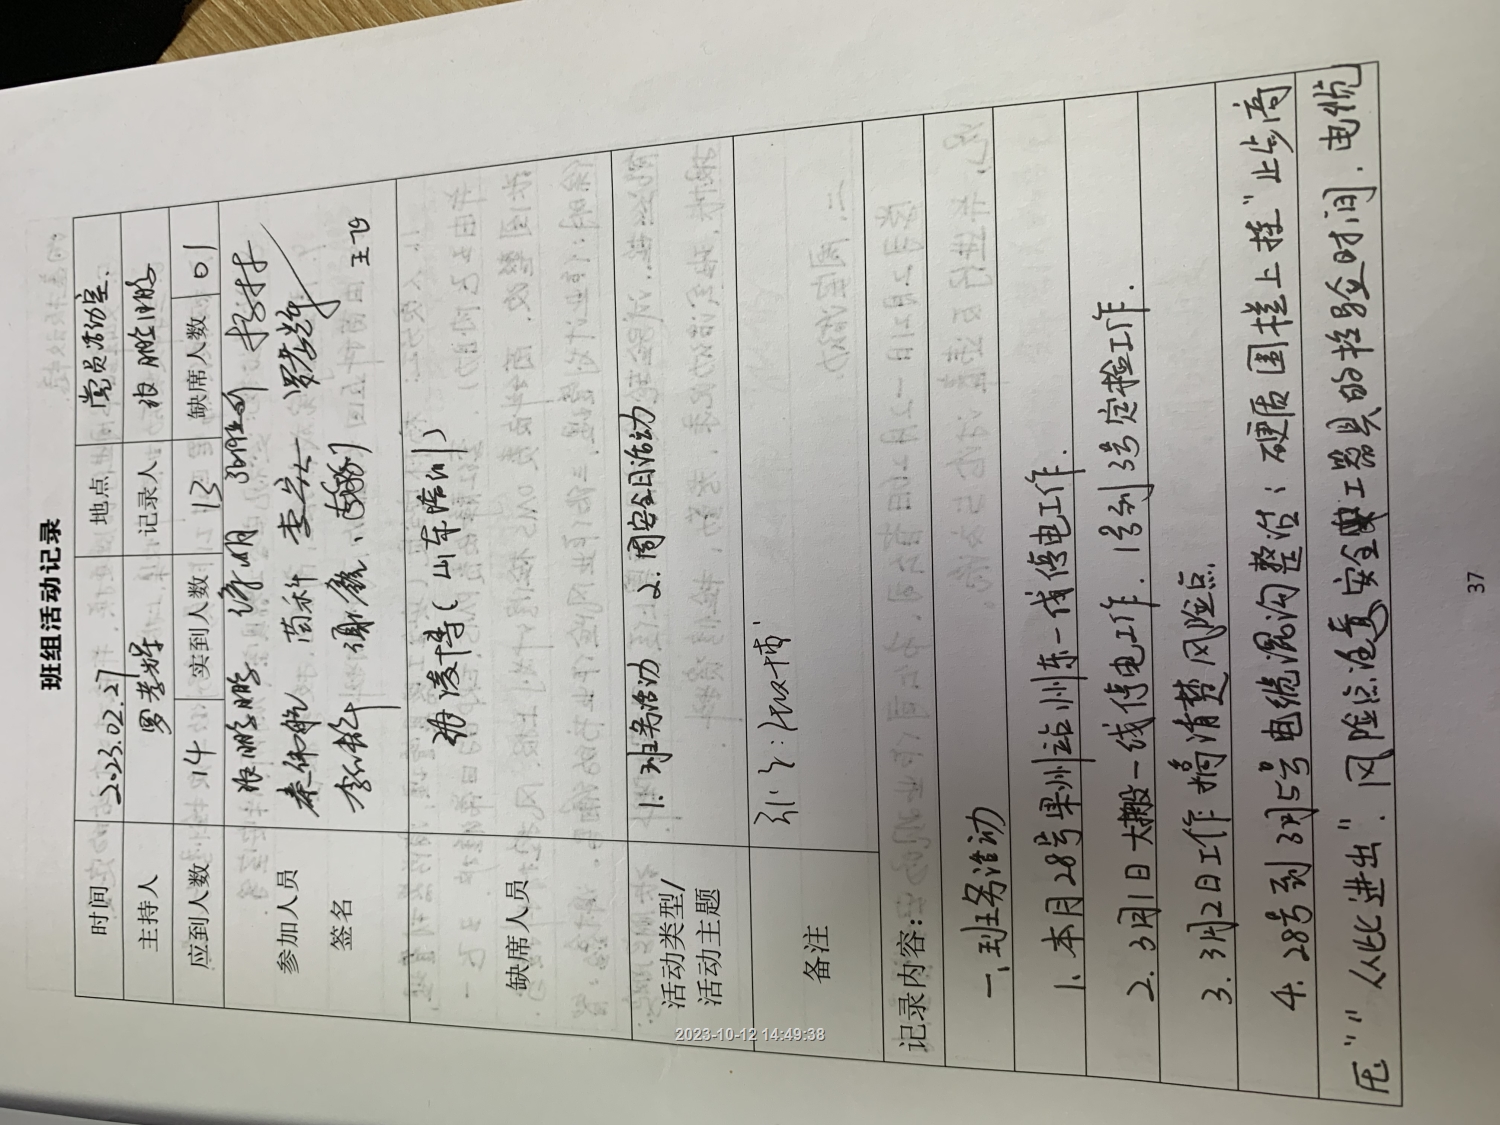 班组活动记录
时间 2023.02.27 地点 党员活动室.
主持人 罗孝辉 记录人 张鹏鹏
应到人数 14 实到人数 13 缺席人数 01
参加人员 张鹏鹏 徐明
签名 秦伟航 苗科 罗孝辉
王飞
缺席人员 凌博(山东培训)
活动类型/ 1.班务活动 2.周安全日活动
活动主题
备注 补学:
记录内容:
一、班务活动
1、本月28号果州站州东一线停电工作.
2.3月1日大搬一线停电工作.1号到3号定检工作.
3.3月2日工作搞清楚风险点.
4.28号到3月5号电缆混沟整治:硬质围栏上挂"止步高
压""从此进出".风险点注意安全工器具的检验时间.电缆
37
2023-10-12 14:49:38